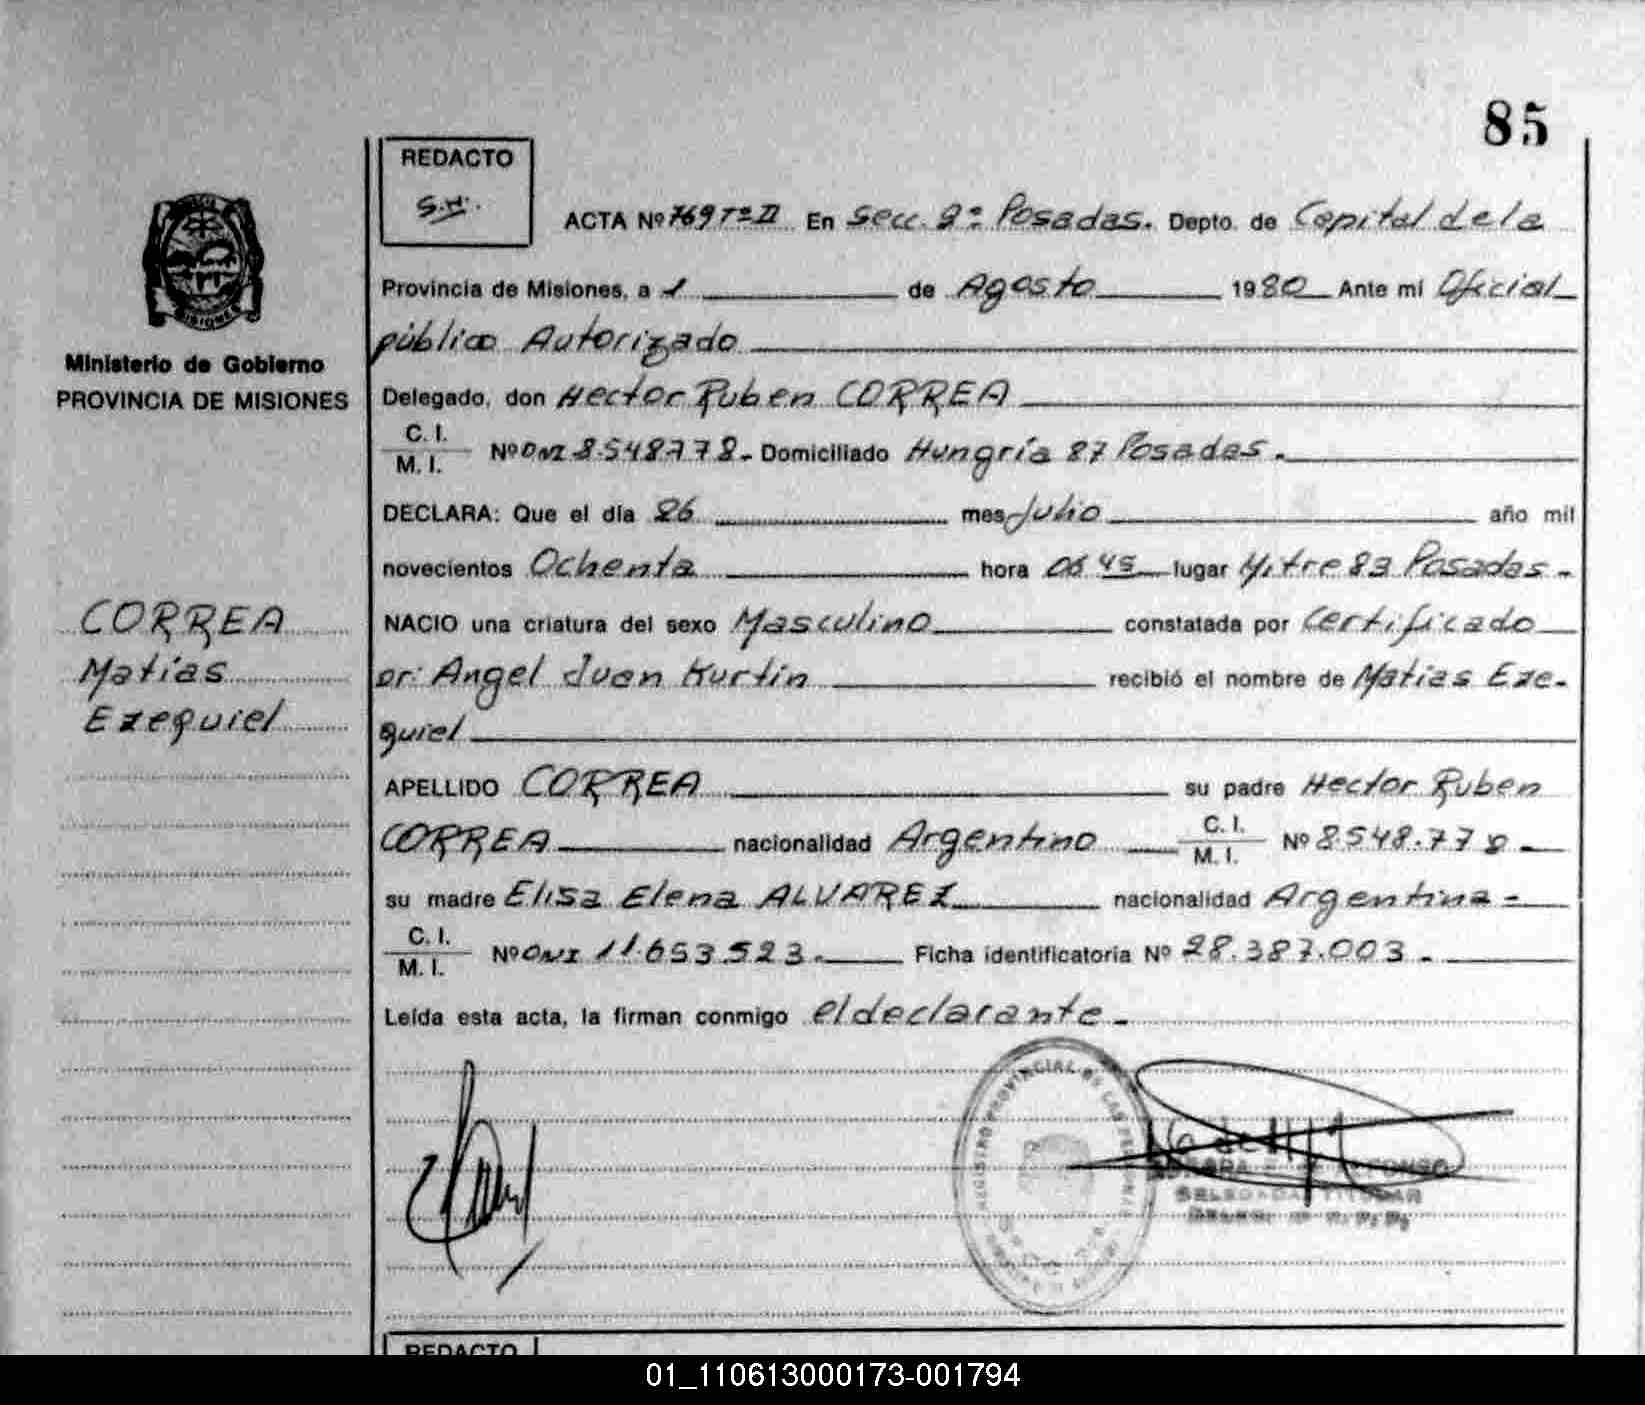 85
REDACTO
S.H.
ACTA Nº 769 Tº II En Secc. 2ª Posadas. Depto. de Capital de la
Provincia de Misiones, a 1 de Agosto 1980 Ante mi Oficial
público Autorizado
Ministerio de Gobierno
PROVINCIA DE MISIONES
MISIONES
Delegado, don Hector Ruben CORREA
C. I.
M. I. Nº DNI 8.548.778.- Domiciliado Hungría 87 Posadas.
DECLARA: Que el día 26 mes Julio año mil
novecientos Ochenta hora 06 45 lugar Mitre 83 Posadas-
CORREA
Matias
Ezequiel
NACIO una criatura del sexo Masculino constatada por Certificado
Dr: Angel Juan Kurtin recibió el nombre de Matias Eze-
quiel
APELLIDO CORREA su padre Hector Ruben
CORREA nacionalidad Argentino C. I. M. I. Nº 8.548.778-
su madre Elisa Elena ALVAREZ nacionalidad Argentina-
C. I.
M. I. Nº DNI 11.653.523.- Ficha identificatoria Nº 28.387.003.-
Leída esta acta, la firman conmigo el declarante.-
REGISTRO PROVINCIAL DE LAS PERSONAS
DELEGADA TITULAR
REDACTO
01_110613000173-001794